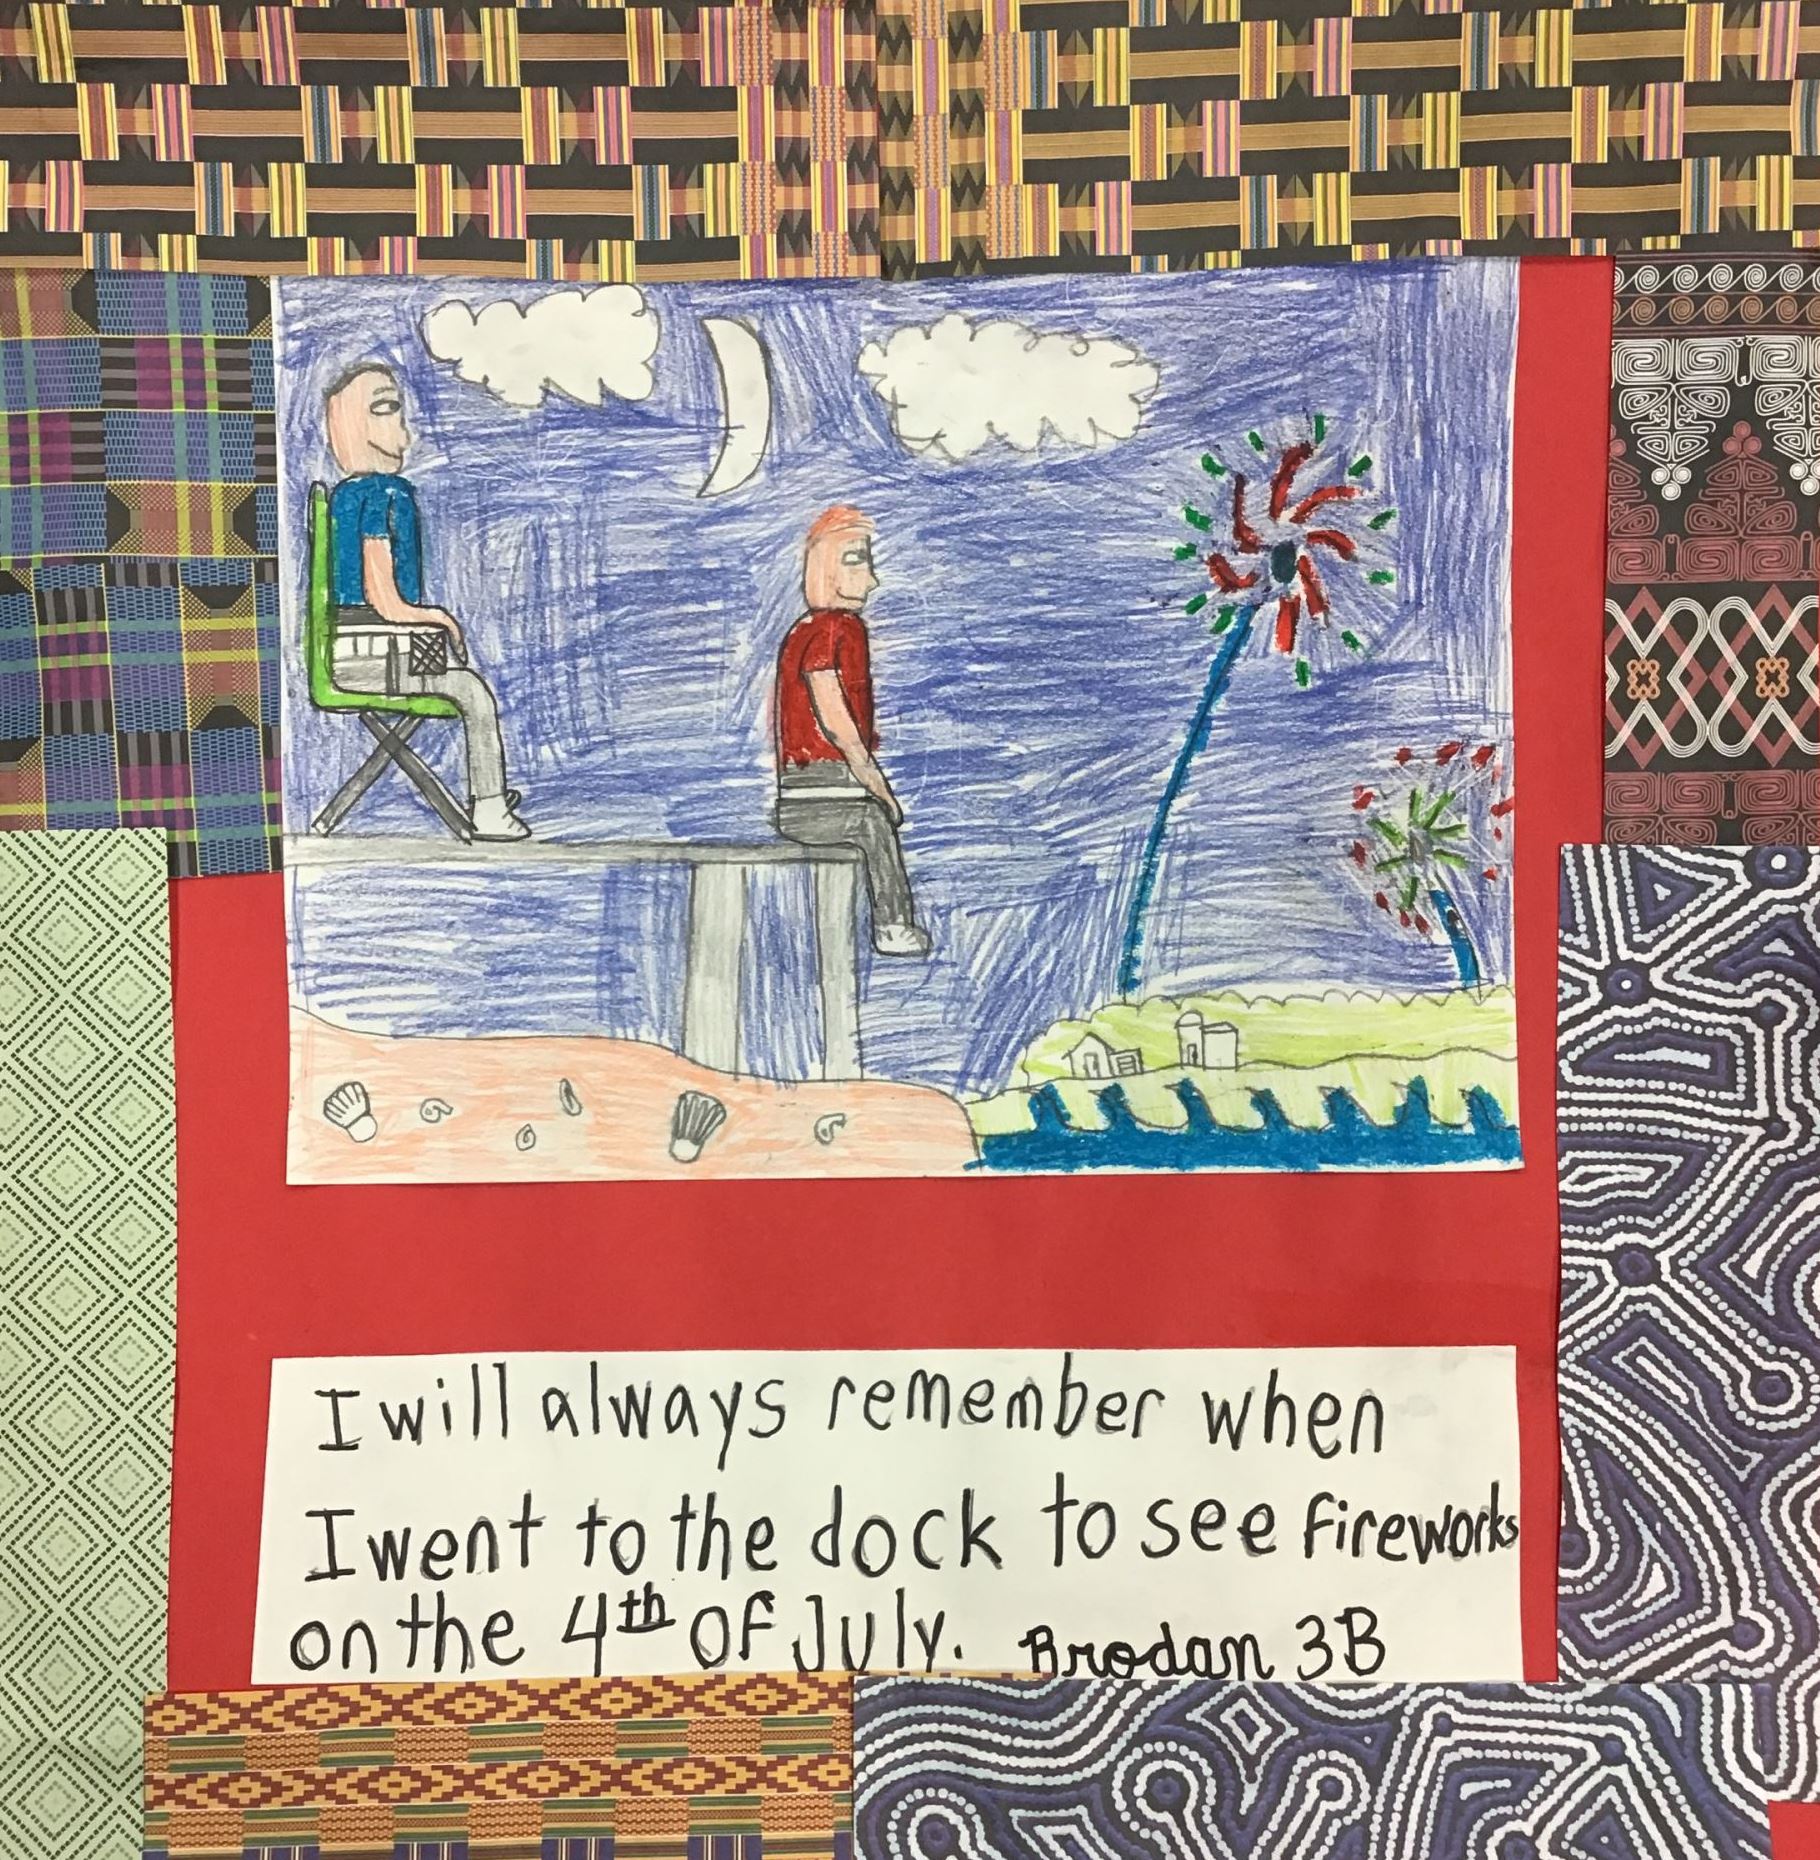 I will always remember when
I went to the dock to see fireworks
on the 4th of July. Brodan 3B